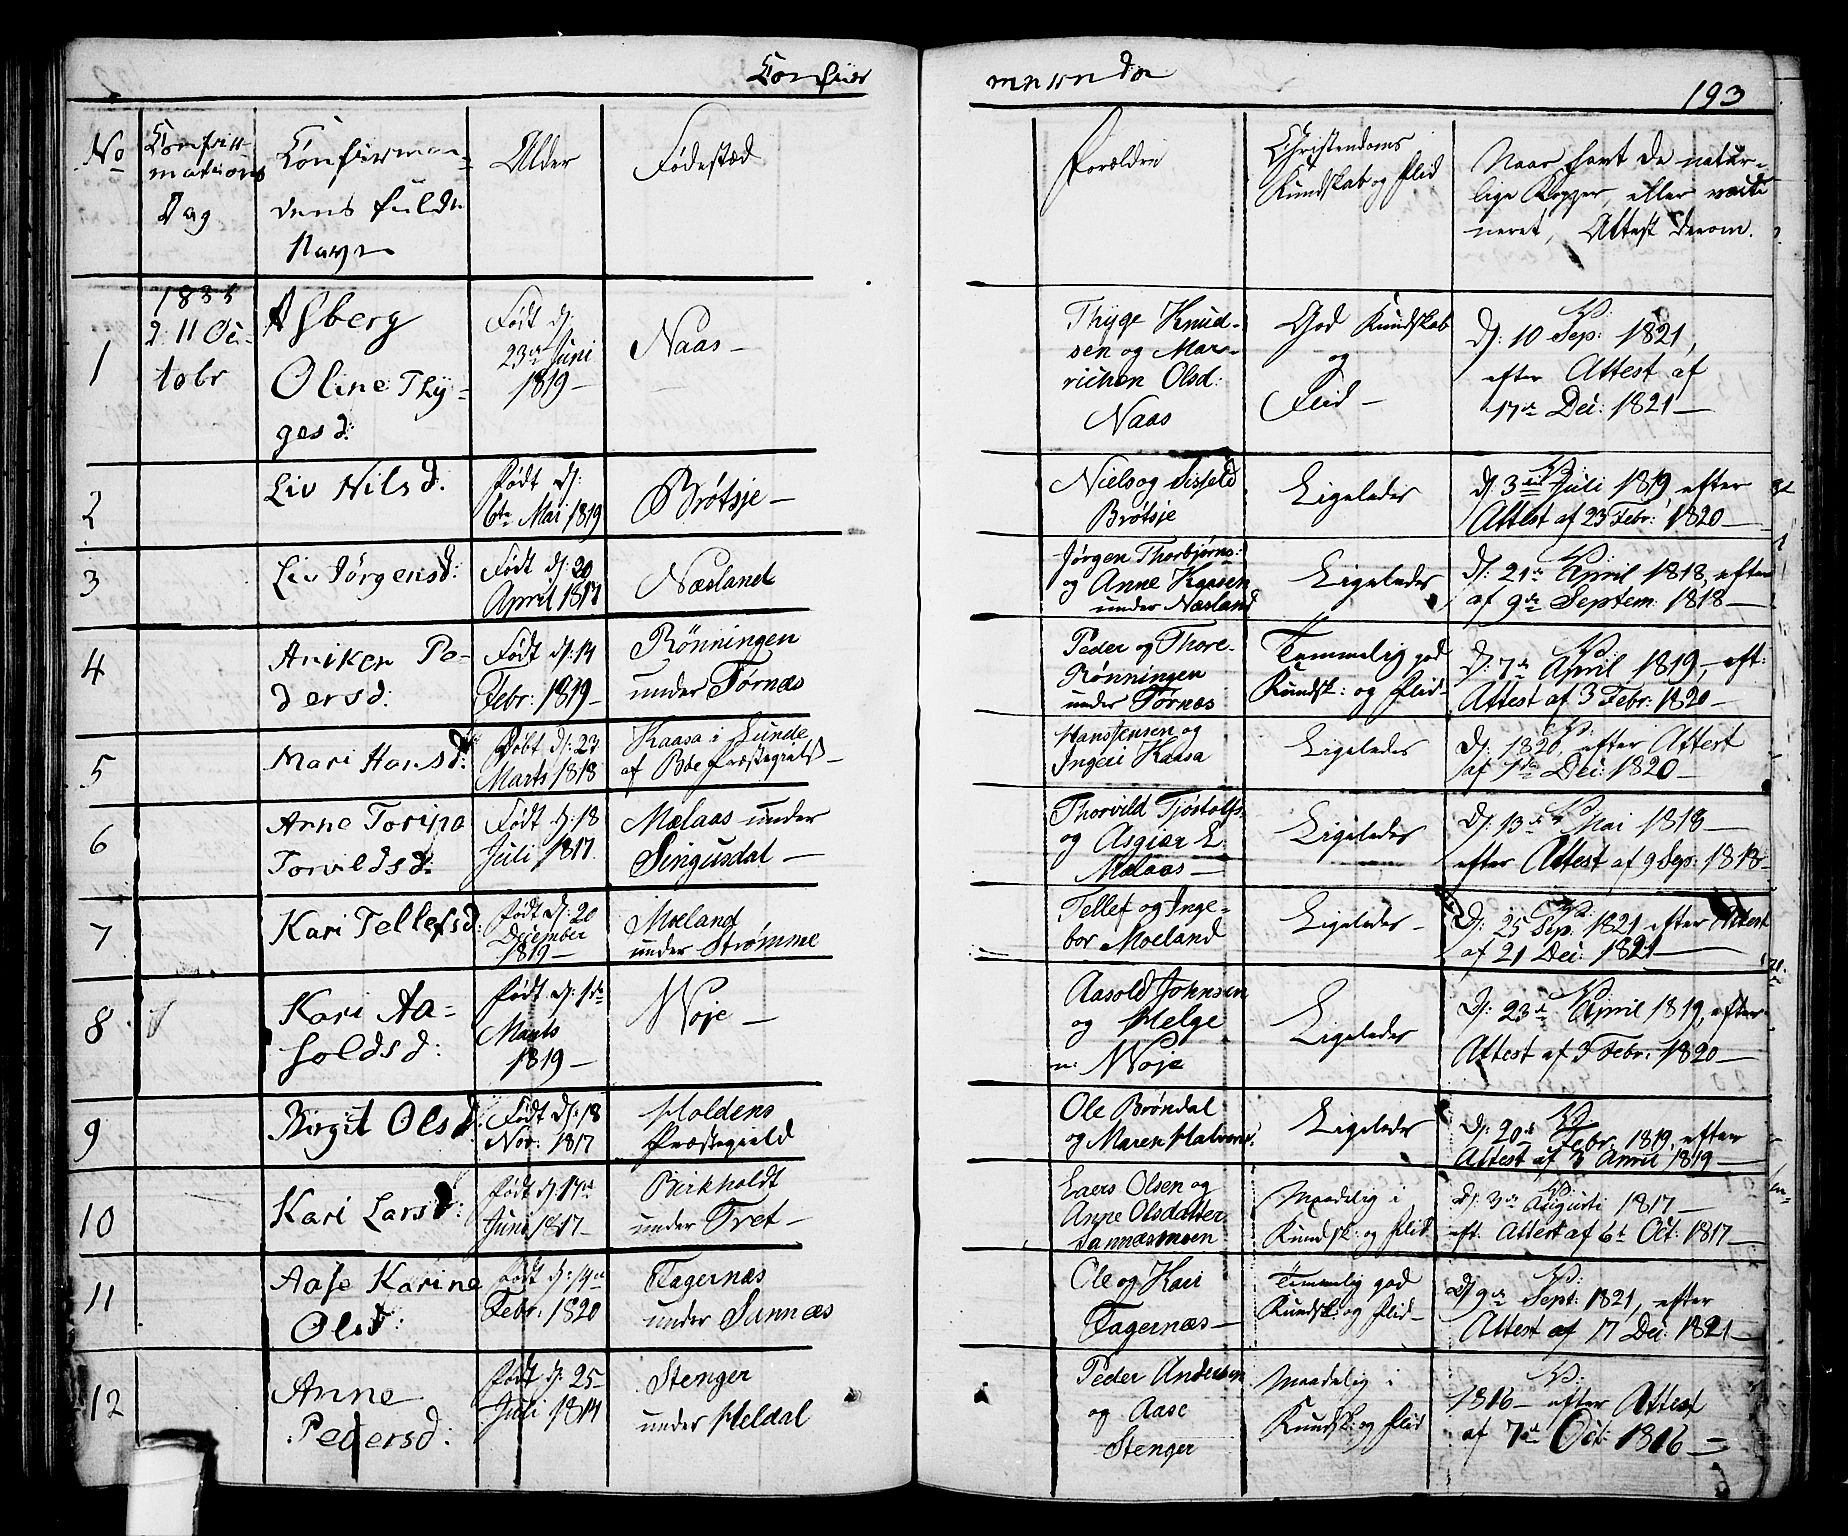 Confir
merende
193
No
Confir-
mations
Dag
Confirman-
dens fulde
Navn
Alder
Fødestæd
Forældre
Christendoms
Kundskab og Flid
Naar havt de natur-
lige Kopper, eller vacci-
neret, Attest derom.
1
1835
d: 11 Oc-
tobr
Asberg
Oline Thy-
gesd:
Født d:
23de Juni
1819 —
Naas —
Thyge Knud-
sen og Mar-
richen Olsd:
Naas
God Kundskab
og
Flid —
V:
D: 10 Sep: 1821,
efter Attest af
17de Dec: 1821 —
2
Liv Nilsd:
Født d:
6te Mai 1819
Brøtsje —
Niels og Sisseld
Brøtsje
Ligeledes
V:
D: 3die Juli 1819 efter
Attest af 23 Febr: 1820 —
3
Liv Jørgensd:
Født d: 20
April 1817
Næsland
Jørgen Thorbjørns:
og Anne Kaasen
under Næsland
Ligeledes
V:
D: 21de April 1818, efter
af 9de Septem: 1818 —
4
Aniken Pe-
dersd:
Født d: 14
Febr: 1819 —
Rönningen
under Tørnæs
Peder og Thore
Rønningen
under Tørnæs
Temmelig god
Kundsk: og Flid —
V:
D: 7de April 1819, — eft:
Attest af 3 Febr: 1820 —
5
Mari Hansd:
Født d: 23
Marts 1818
Kaasa i Lunde
af Bøe Præstegield —
Hans Jensen og
Ingeri Kaasa
Ligeledes
V:
D: 1820, efter Attest
af 1ste Dec: 1820 —
6
Anne Torine
Torvildsd:
Født d: 18
Juli 1817.
Mælaas under
Singusdal —
Thorvild Tjøstolfs.
og Asgiær L.
Mælaas —
Ligeledes
V:
D: 13de Mai 1818 —
efter Attest af 9 Sep: 1818 —
7
Kari Tellefsd:
Født d: 20
December
1819 —
Moeland
under Strømme
Tellef og Inge-
bor Moeland
Ligeledes —
V:
D: 25 Sep: 1821 efter Attest
af 21 Dec: 1821 —
8
Kari Aa-
soldsd:
Født d: 1ste
Marts
1819 —
Woje —
Aasold Johnsen
og Helge
Woje
Ligeledes
V:
D: 23de April 1819, efter
Attest af 3 Febr: 1820 —
9
Birgit Olsd:
Født d: 18
Nov: 1817
Holdens
Præstegield
Ole Brøndal
og Maren Halvors:
Ligeledes
V:
D: 20de Febr: 1819, efter
Attest af 3 April 1819 —
10
Kari Larsd:
Født d: 17de
Juni 1817 —
Birkholdt
under Tvet —
Laers Olsen og
Anne Olsdatter
Sannæsmoen
Maadelig i
Kundsk: og Flid
V:
D: 3de Augusti 1817 —
eft. Attest af 6te Oct: 1817 —
11
Aase Karine
Olsd:
Født d: 14de
Febr: 1820
Fagernæs
under Sannæs
Ole og Kari
Fagernæs —
Temmelig god
Kundsk: og Flid —
V:
D: 9de Sept: 1821, efter
Attest af 17 Dec: 1821 —
12
Anne
Pedersd:
Født d: 25
Juli 1814
Stenger
under Heldal
Peder Andersen
og Aase
Stenger
Maadelig i
Kundsk: og Flid
V:
1816 — efter Attest
af 7de Oct: 1816 —